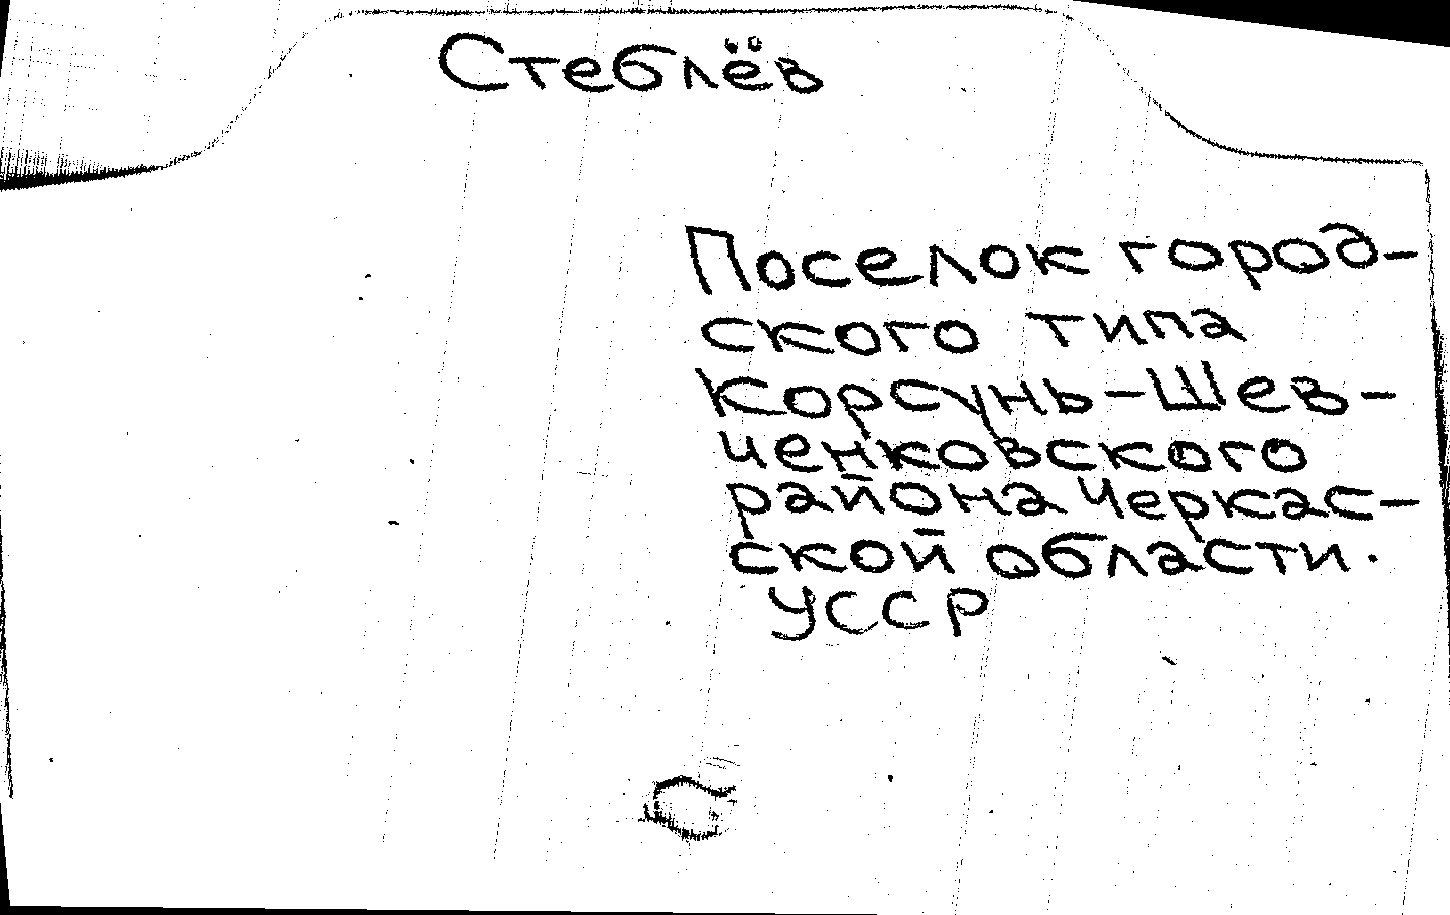 Стеблёв
Поселок город-
ского типа
Корсунь-Шев-
ченковского
района Черкас-
ской области.
УССР